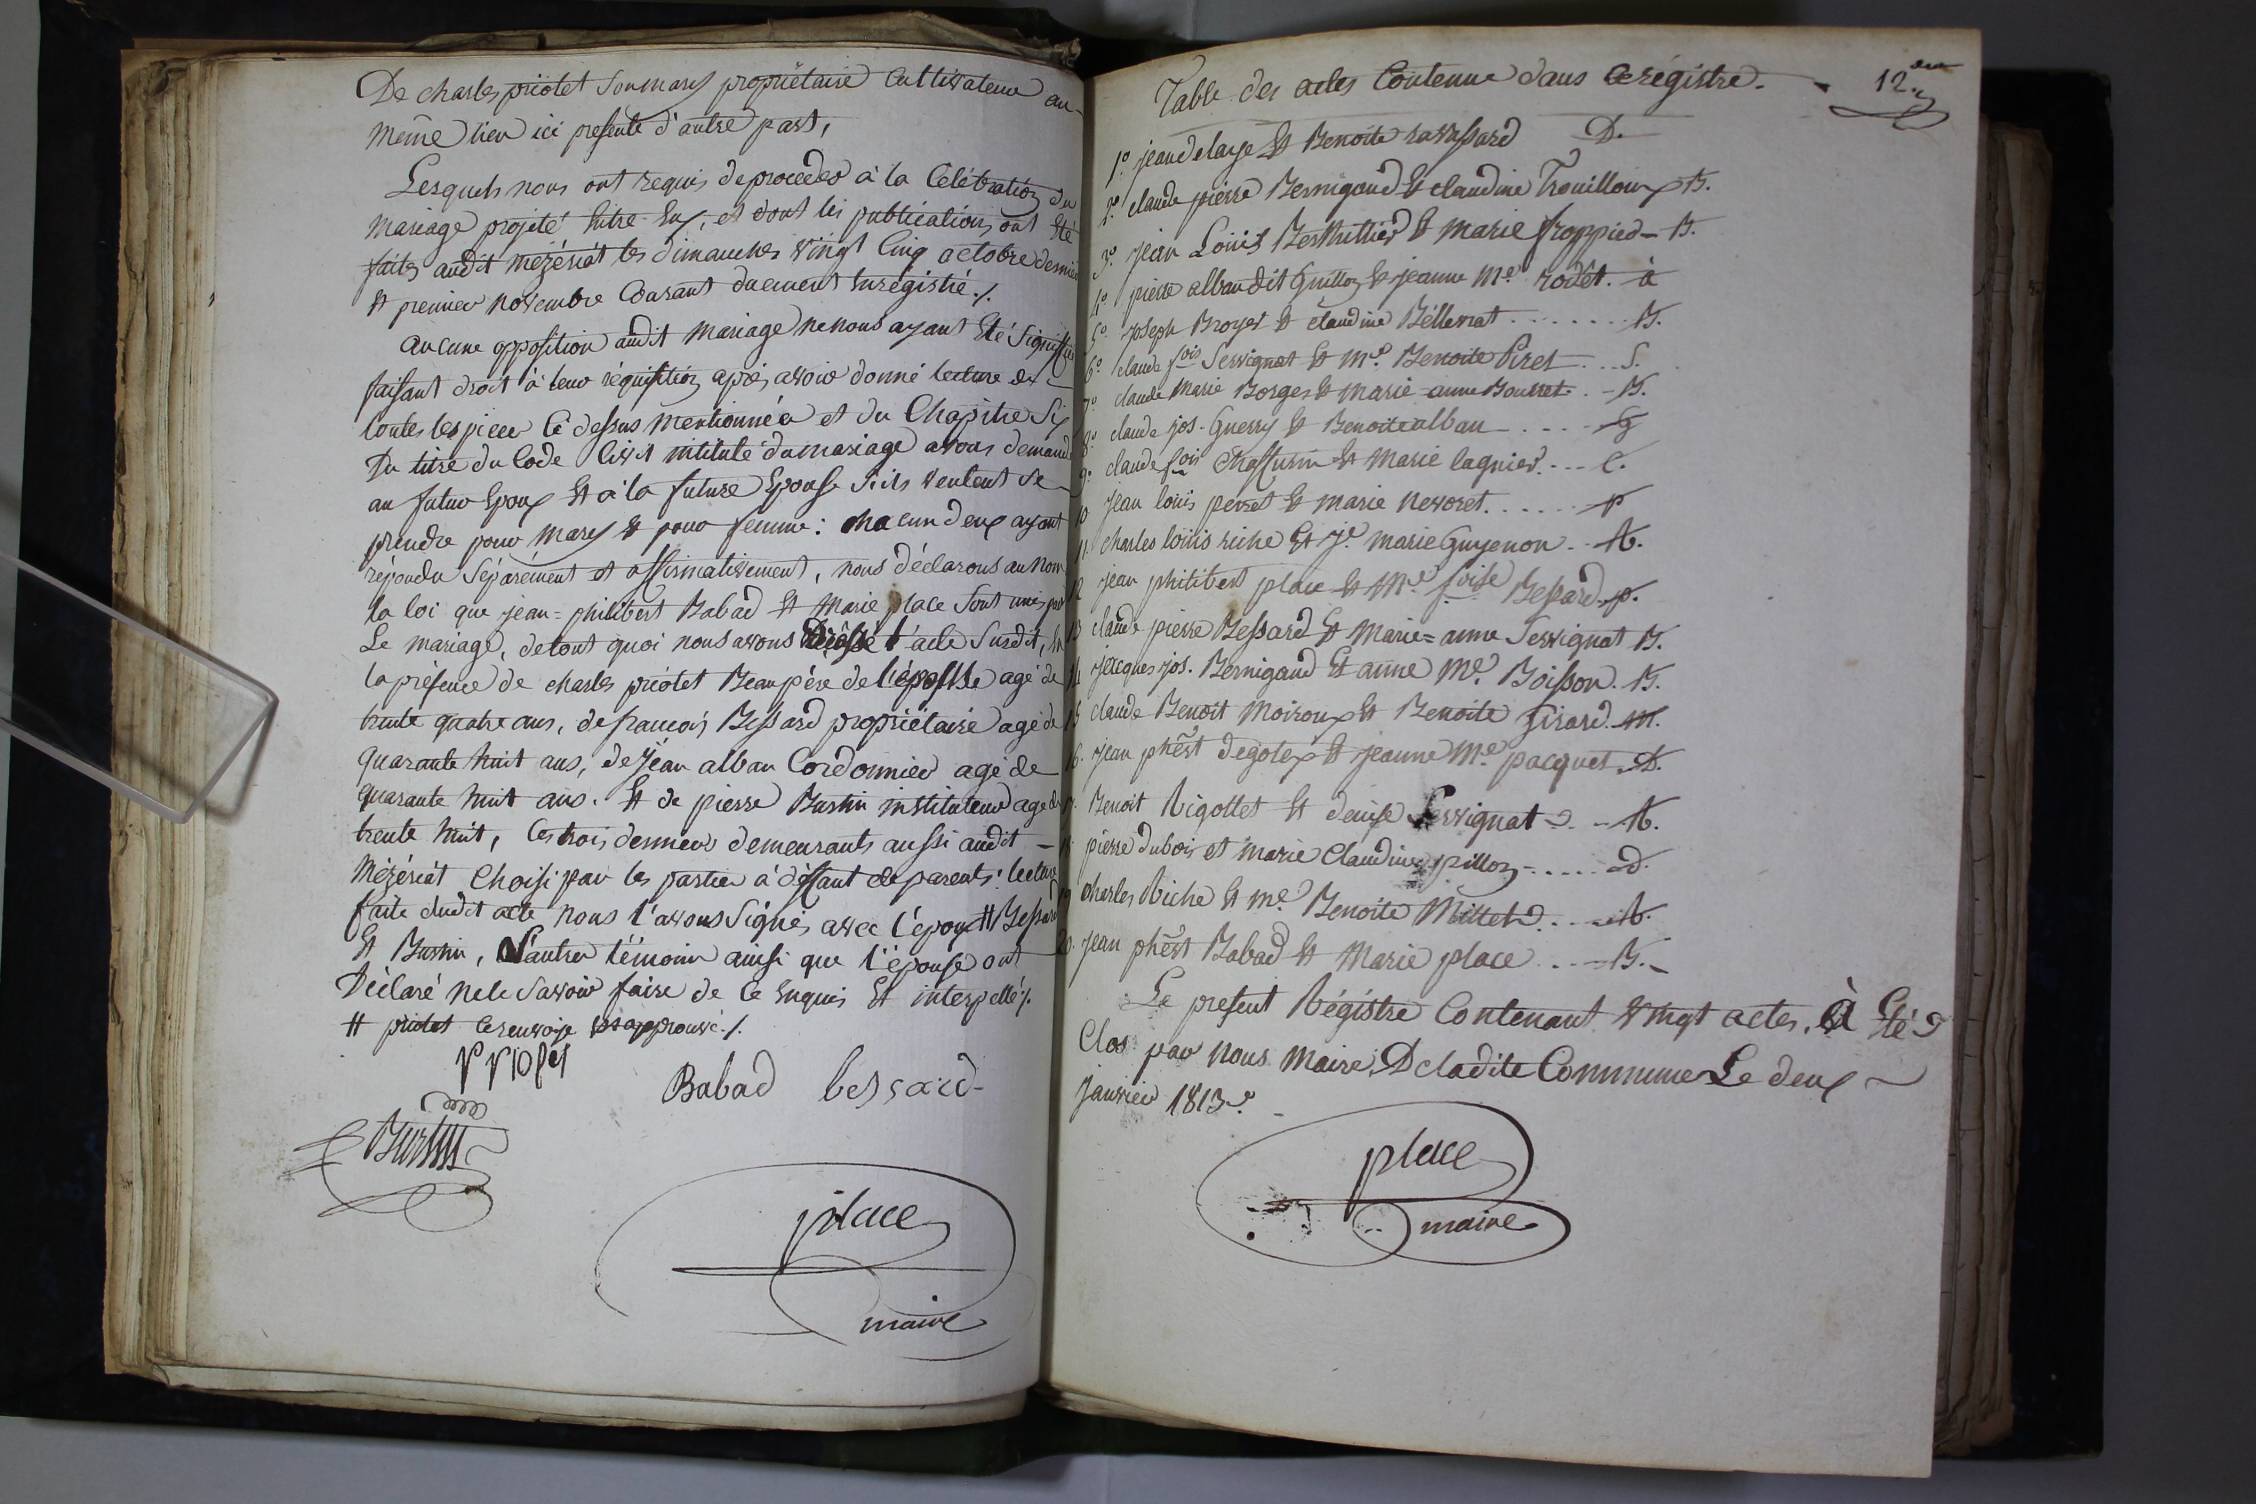 De charles priotet son mary propriétaire Cultivateur au
même lieu ici présente d'autre part,
Lesquels nous ont requis de procéder à la Célébration du
mariage projeté Entre Eux, et dont les publications ont été
faites audit mézériat les dimanches vingt Cinq octobre dernier
Et premier novembre Courant duement Enrégistré ./.
aucune opposition audit mariage ne nous ayant Eté signiffiée
faisant droit à leur réquisition après avoir donné lecture de
toutes les pièce Ci dessus mentionnée et du Chapitre Six
Du titre du Code Civil intitulé du mariage avons demandé
au futur Epoux Et à la future Epouse s'ils veulent se
prendre pour mary Et pour femme : chacun deux ayant
répondu séparément et affirmativement, nous déclarons au nom
la loi que jean=philibert Babad Et Marie place sont unis par
Le mariage, de tout quoi nous avons dressé l'acte susdit, En
la présence de charles priotet Beaupère de l'épouse agé de
trente quatre ans, de francois Bessard propriétaire agé de
quarante huit ans, de Jean alban Cordonnier agé de
quarante huit ans. Et de pierre Burtin instituteur agé de
trente huit, Ces trois dernier demeurants aussi audit
Mézériat Choisi par les partier à déffaut de parents : lecture
faite dudit acte nous l'avons signés avec l'époux # Bessard
Et Burtin, l'autre témoin ainsi que l'épouse ont
Déclaré ne le savoir faire de Ce Enquis Et interpellé ./.
# priotet Ce renvoje approuvé ./.
Babad bessard
Burtin
place
maire
Table des actes Contenue dans Ce régistre. 12.
1.º jean delarge Et Benoite ravassard D.
2.º claude pierre Bernigaud Et claudine Trouilloux B.
3.º jean Louis Berthillier Et marie froppied - B.
4.º pierre alban dit Guillon Et jeanne Me. rodêt. à
5.º joseph Broyer Et claudine Béllevrat . . . . . . . . B.
6.º claude fois Servignat Et Me. Benoite Piret . . . S.
7.º claude Marie Borges Et marie anne Bourret . - B.
8.º claude jos. Guerry Et Benoite alban . . . . - G
9.º claude fois Chassurin Et Marie lagnier . - - - C.
10 jean louis perret Et marie nevoret. . . . . . p
11. charles louis riche Et je. marie Guyenon . . R.
12 jean philibert place Et Me. foise Bessard . p.
13 claude pierre Bessard Et Marie=anne Servignat B.
14 jacques jos. Bernigaud Et anne Me. Boisson. B.
15 claude Benoit Moiroux Et Benoite Girard. M.
16. jean phbert degotex Et jeanne Me. pacquet. D.
17. Benoit Rigottet Et denise Servignat . . . R.
18. pierre dubois et marie Claudine pillon - . . . . D.
19 charles Riche Et me. Benoite Mittet . . . . R.
20. jean phbert Babad Et Marie place . . . - B. -
Le présent Régistre Contenant vingt actes, à Eté
Clos par nous Maire De ladite Commune Le deux
janvier 1813.
place
maire